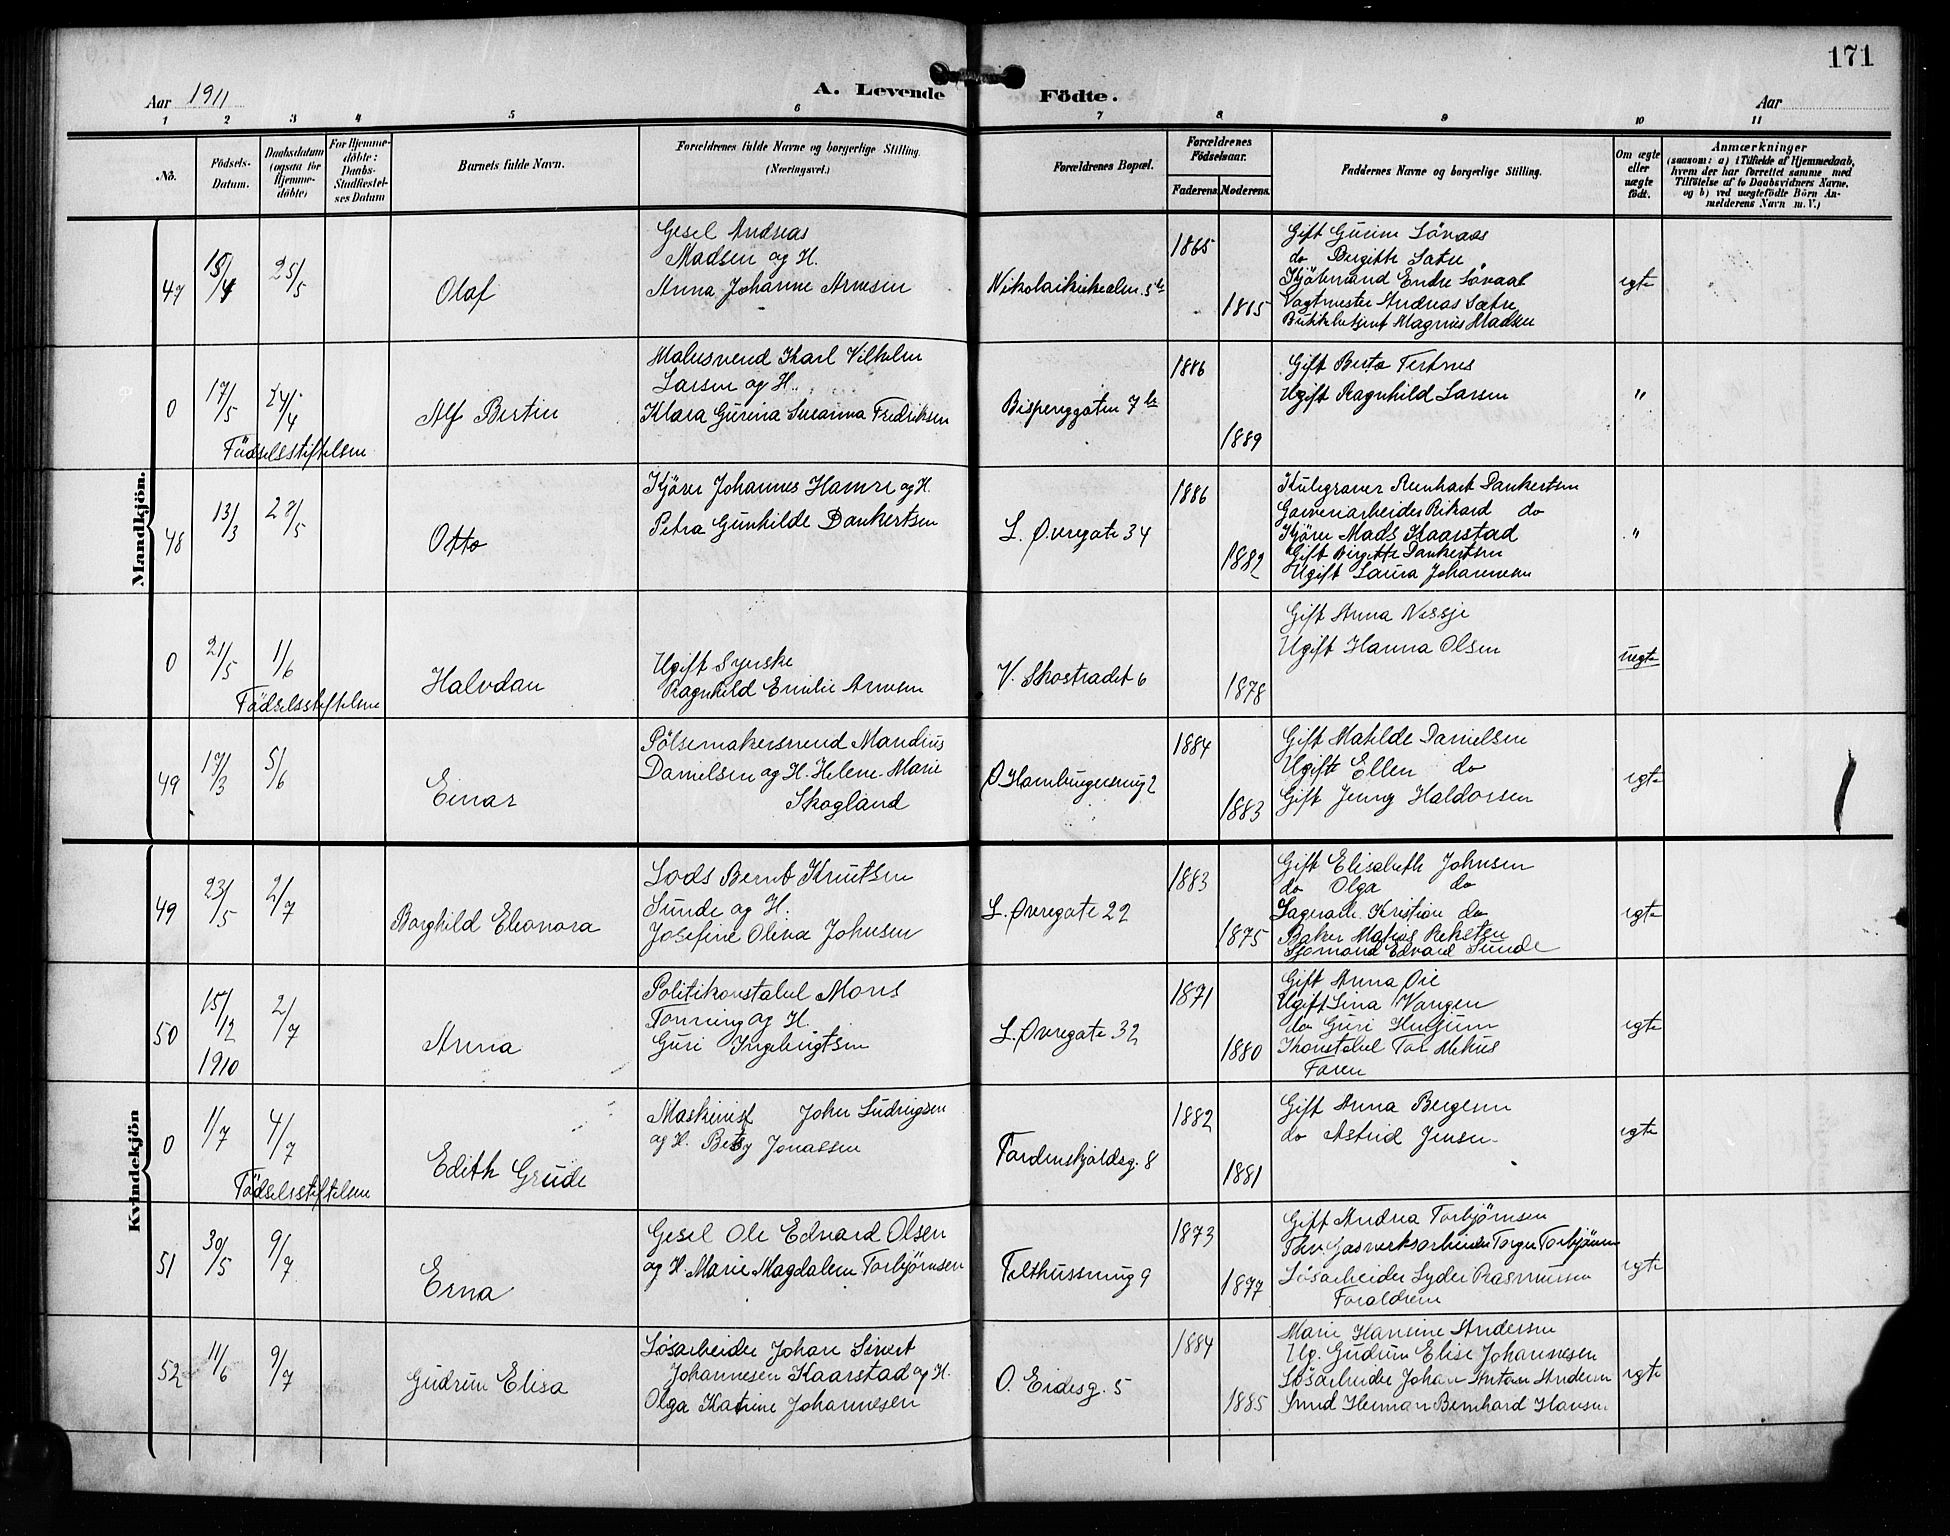 171
Aar 1911
A. Levende Födte.
Aar
1 2 3 4 5 6 7 8 9 10 11
No.
Födsels-Datum.
Daabsdatum (ogsaa for Hjemmedöbte)
For Hjemmedöbte: Daabs-Stadfæstelses Datum
Barnets fulde Navn.
Forældrenes fulde Navne og borgerlige Stilling. (Næringsvei.)
Forældrenes Bopæl.
Forældrenes Födselsaar.
Faderens.
Moderens.
Faddernes Navne og borgerlige Stilling.
Om ægte eller uægte födt.
Anmærkninger
(saasom: a) i Tilfælde af Hjemmedaab,
hvem der har forrettet samme med
Tilföielse af to Daabsvidners Navne,
og b) ved uægtefödte Börn An-
melderens Navn m. V.)
Mandkjön.
47
18/4
25/5
Olaf
Gesel Andreas
Madsen og H.
Anna Johanne Arnesen
Nikolaikirkealm. 5 b
1865
1865
Gift Gurine Lövaas
do Birgitte Sætre
Kjöbmand Endre Lövaas
Vagtmester Andreas Sætre
Butikbetjent Magnus Madsen
egte
0
17/5
24/4
Födselsstiftelsen
Alf Bertin
Malersvend Karl Vilhelm
Larsen og H.
Klara Gurina Susanna Fredriksen
Bispenggaten 7 b
1886
1889
Gift Berta Tertnes
Ugift Ragnhild Larsen
"
48
13/3
28/5
Otto
Kjörer Johannes Hamre og H.
Petra Gunhilde Dankertsen
L. Øvregate 34
1886
1882
Kulegraver Reinhart Dankertsen
Garveriarbeider Rikard do
Kjörer Mads Kaarstad
Gift Birgitte Dankertsen
Ugift Laura Johannesen
"
0
21/5
1/6
Födselsstiftelsen
Halvdan
Ugift Syerske
Ragnhild Emilie Arnesen
V. Skostrædet 6
1878
Gift Anna Nessje
Ugift Hanna Olsen
uegte
49
17/3
5/6
Einar
Pölsemakersvend Mandius
Danielsen og H. Helene Marie
Skogland
Ø Hamburgersmug 2
1884
1883
Gift Matilde Danielsen
Ugift Ellen do
Gift Jenny Haldorsen
egte
Kvindekjön
49
23/5
2/7
Borghild Eleonora
Lods Bernt Knutsen
Sunde og H.
Josefine Olina Johnsen
L. Øvregate 22
1883
1875
Gift Elisabeth Johnsen
do Olga do
Lagerarb. Kristian do
Baker Matias Reksten
Sjömand Edvard Sunde
egte
50
15/12
1910
2/7
Anna
Politikonstabel Mons
Tonning og H.
Guri Ingebrigtsen
L. Øvregate 32
1871
1880
Gift Anna Øie
Ugift Lina Vangen
do Guri
Konstabel Tor Mehus
Faren
egte
0
1/7
4/7
Födselsstiftelsen
Edith Grude
Maskinist John Ludvigsen
og H. Betsy Jonassen
Tordenskjoldsg. 8
1882
1881
Gift Anna Bergesen
do Astrid Jensen
egte
51
30/5
9/7
Erna
Gesel Ole Edvard Olsen
og H. Marie Magdalene Torbjörnsen
Felthussmug 9
1873
1877
Gift Andrea Torbjörnsen
Fhv. Gasverksarbeider Torger Torbjörnsen
Lösarbeider Lyder Rasmussen
Forældrene
egte
52
11/6
9/7
Gudrun Elisa
Lösarbeider Johan Sivert
Johannesen Kaarstad og H.
Olga Katrine Johannesen
O. Eidesg. 5
1884
1885
Marie Hansine Andersen
Ug. Gudrun Elise Johannesen
Lösarbeider Johan Anton Andersen
Smed Herman Bernhard Hansen
egte